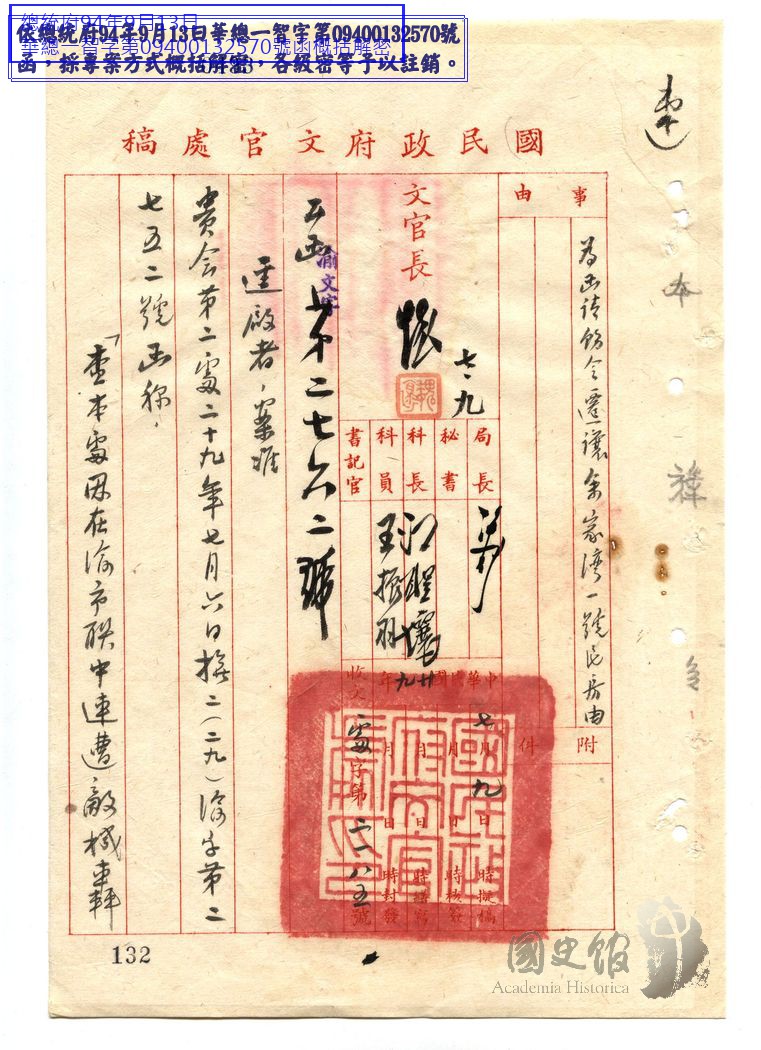 總統府94年9月13日
華總一智字第09400132570號函概括解密
依總統府94年9月13日華總一智字第09400132570號
函，採專案方式概括解密，各級密等予以註銷。
國民政府文官處稿
事由
為函請飭令遷讓余家灣一號民房由
附件
文官長
七、九
局長
秘書
科長
科員
書記官
中華民國廿九年
七月九日時擬稿
月日時核簽
月日時繕寫
月日時封發
收文處字第二一八五號
渝文字
公函 第二七六二號
逕啟者，案准
貴會第二處二十九年七月六日撫二(二九)渝字第二
七五二號函稱，
「查本處因在渝市聯中連遭敵機轟
132
國史館
Academia Historica